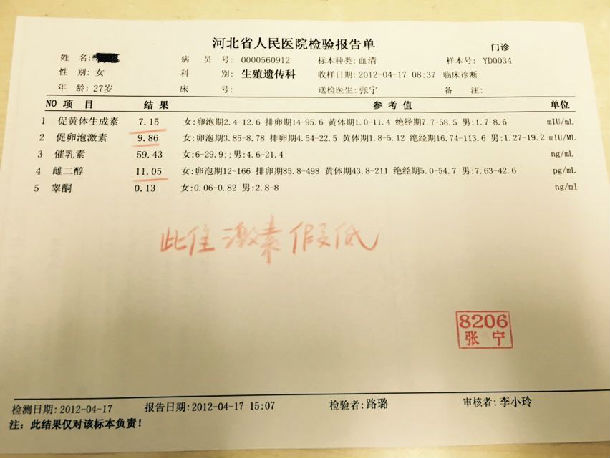 河北省人民医院检验报告单
门诊
姓 名: 病 员 号: 0000560912 标本种类:血清 样本号: YD0034
性 别: 女 科 别: 生殖遗传科 收样日期:2012-04-17 08:37 临床诊断
年 龄: 27岁 床 号: 送检医生:张宁 备 注:
NO 项 目 结 果 参 考 值 单位
1 促黄体生成素 7.15 女:卵泡期2.4-12.6 排卵期14-95.6 黄体期1.0-11.4 绝经期7.7-58.5 男:1.7-8.6 mIU/mL
2 促卵泡激素 9.86 女:卵泡期3.85-8.78 排卵期4.54-22.5 黄体期1.8-5.12 绝经期16.74-113.6 男:1.27-19.2 mIU/mL
3 催乳素 59.43 女:6-29.9;;男:4.6-21.4 ng/mL
4 雌二醇 11.05 女:卵泡期12-166 排卵期85.8-498 黄体期43.8-211 绝经期5.0-54.7 男:7.63-42.6 pg/mL
5 睾酮 0.13 女:0.06-0.82 男:2.8-8 ng/mL
激素 低
8206
张宁
检测日期:2012-04-17 报告日期:2012-04-17 15:07 检验者:路璐 审核者:李小玲
注: 此结果仅对该标本负责!